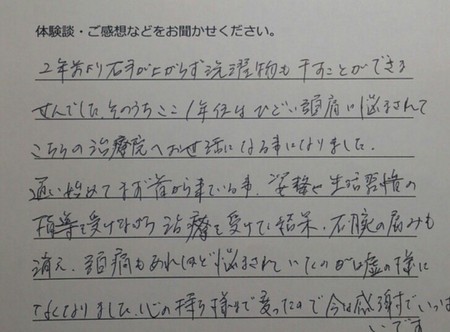 体験談・ご感想などをお聞かせください。
2年前より右手が上がらず洗濯物も干すことができま
せんでした。そのうちここ1年位はひどい頭痛に悩まされて
こちらの治療院へお世話になる事になりました。
通い始めてまず首から来ている事、姿勢や生活習慣の
指導を受けながら治療を受けて結果、右腕の痛みも
消え、頭痛もあれほど悩まされていたのが嘘の様に
なくなりました。心の持ち様まで変ったので今は感謝でいっぱ
いです